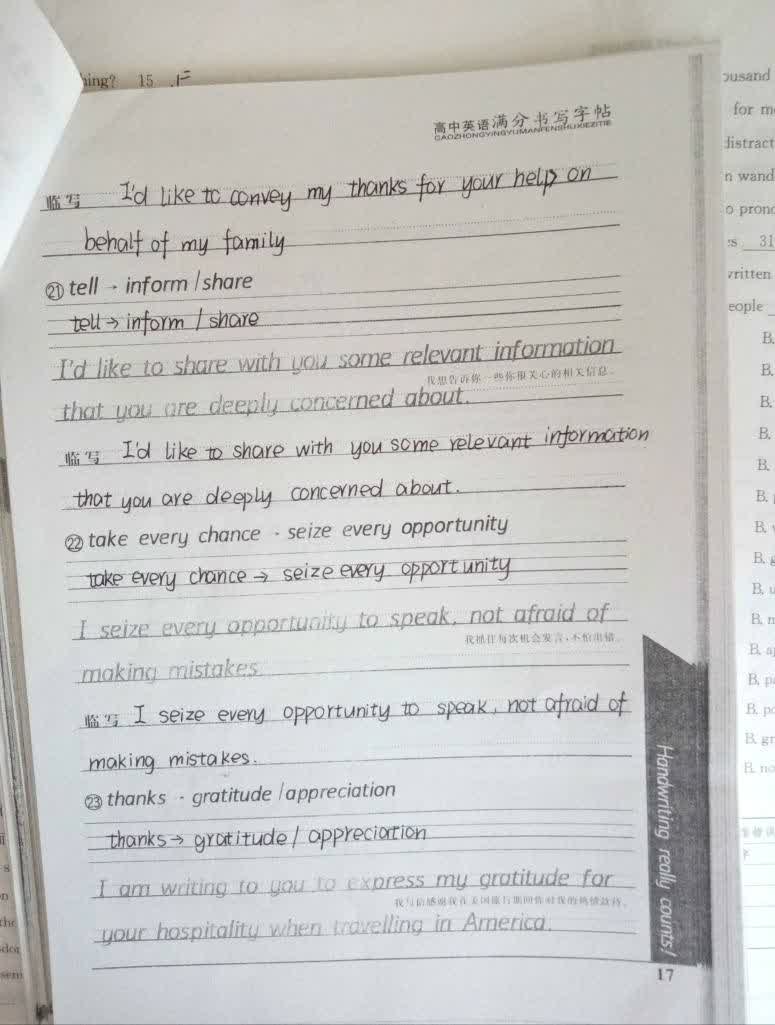 hing? 15
高中英语满分书写字帖
GAOZHONGYINGYUMANFENSHUXIEZITIE
临写 I'd like to convey my thanks for your help on
behalf of my family
㉑ tell → inform / share
tell → inform / share
I'd like to share with you some relevant information
我想告诉你一些你很关心的相关信息。
that you are deeply concerned about.
临写 I'd like to share with you some relevant information
that you are deeply concerned about.
㉒ take every chance → seize every opportunity
take every chance → seize every opportunity
I seize every opportunity to speak, not afraid of
我抓住每次机会发言，不怕出错。
making mistakes.
临写 I seize every opportunity to speak, not afraid of
making mistakes.
㉓ thanks → gratitude / appreciation
thanks → gratitude / appreciation
I am writing to you to express my gratitude for
我写信感谢我在美国旅行期间你对我的热情款待。
your hospitality when travelling in America.
Handwriting really counts!
17
ousand
for m
distract
n wand
o prono
s 31
written
eople
B.
B.
B.
B.
B.
B.
B.
B.
B.
B.
B.
B.
B.
B.
B.